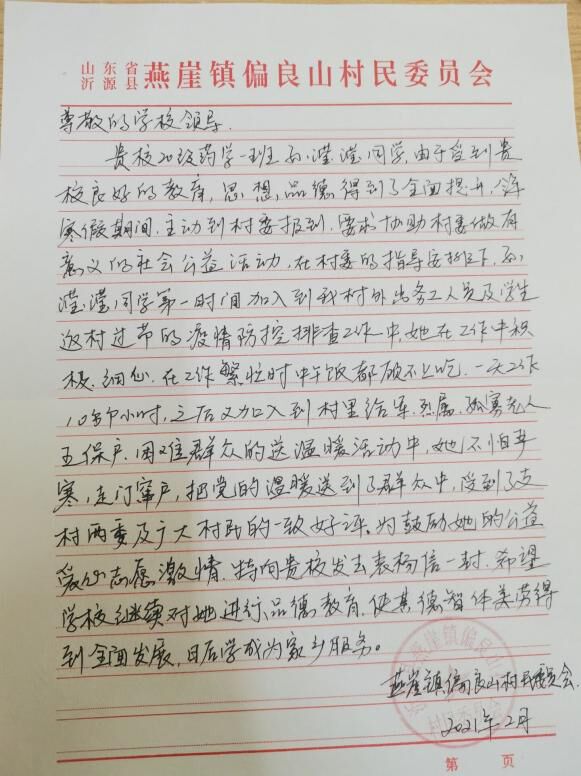 山东省
沂源县 燕崖镇偏良山村民委员会
尊敬的学校领导.
贵校20级药学一班孙滢滢同学,由于受到贵
校良好的教育,思想,品德得到了全面提升,
寒假期间.主动到村委报到.要求协助村委做有
意义的社会公益活动,在村委的指导安排下,孙
滢滢同学第一时间加入到我村外出务工人员及学生
返村过节的疫情防控排查工作中,她在工作中积
极.细心.在工作繁忙时中午饭都顾不上吃.一天工作
10多个小时,之后又加入到村里给军.烈属.孤寡老人
五保户.困难群众的送温暖活动中,她不怕
寒,走门窜户,把党的温暖送到了群众中,受到了支
村两委及广大村民的一致好评。为鼓励她的公益
爱心志愿激情.特向贵校发去表杨信一封.希望
学校继续对她进行品德教育.使其德智体美劳得
到全面发展,日后学成为家乡服务。
燕崖镇偏良山村民委员会.
2021年2月
第 页